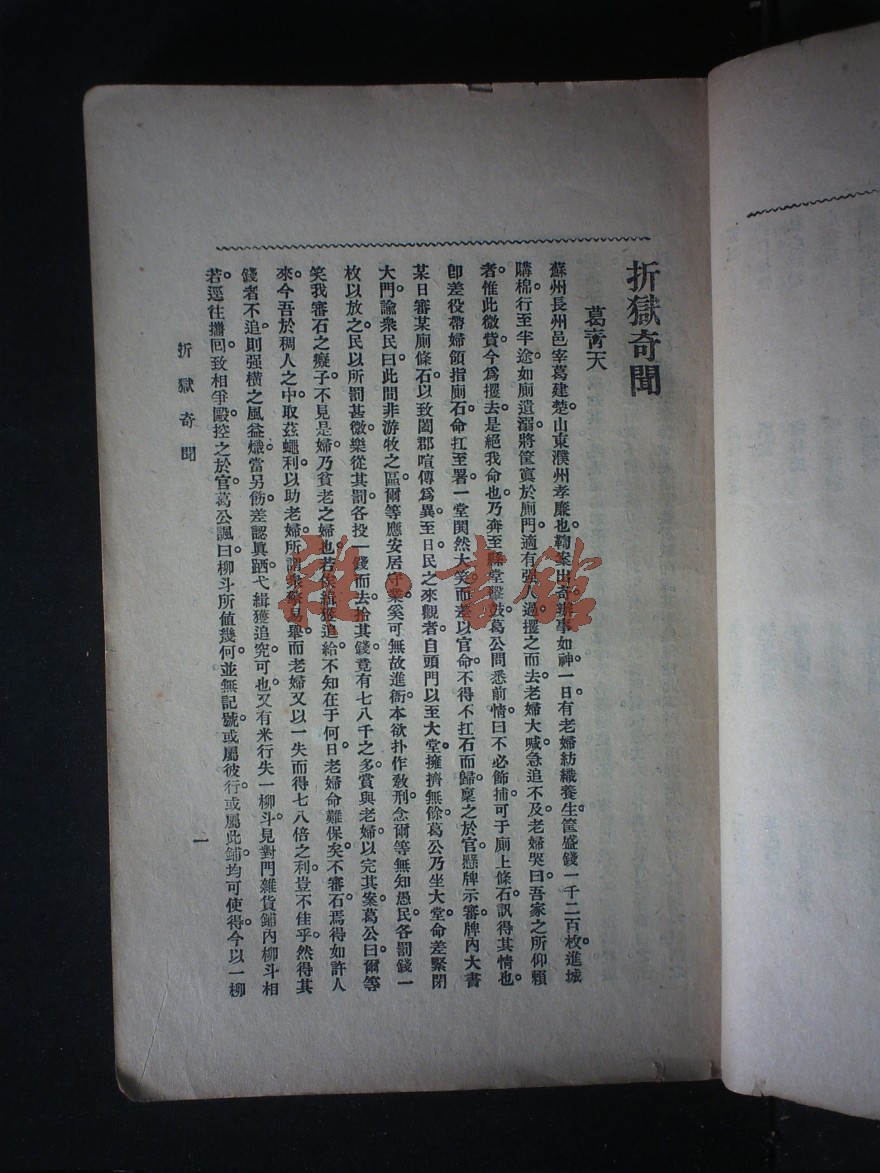 折獄奇聞
葛青天
蘇州長州邑宰葛建楚山東濮州孝廉也鞫案出奇辦事如神一日有老婦紡織養生筐盛錢一千二百枚進城
購棉行至半途如廁遺溺將筐寘於廁門適有强人過攫之而去老婦大喊急追不及老婦哭曰吾家之所仰賴
者惟此微貲今爲攫去是絕我命也乃奔至縣堂擊鼓葛公問悉前情曰不必飭捕可于廁上條石訊得其情也
卽差役帶婦領指廁石命扛至署一堂閧然大笑而差以官命不得不扛石而歸稟之於官懸牌示審牌內大書
某日審某廁條石以致闔郡喧傳爲異至日民之來觀者自頭門以至大堂擁擠無餘葛公乃坐大堂命差緊閉
大門諭衆民曰此間非游牧之區爾等應安居守業奚可無故進衙本欲扑作敎刑念爾等無知愚民各罰錢一
枚以放之民以所罰甚微樂從其罰各投一錢而去拾其錢竟有七八千之多賞與老婦以完其案葛公曰爾等
笑我審石之癡子不見是婦乃貧老之婦也若俟緝獲追給不知在于何日老婦命難保矣不審石焉得如許人
來今吾於稠人之中取茲蠅利以助老婦所謂衆擎易舉而老婦又以一失而得七八倍之利豈不佳乎然得其
錢者不追則强橫之風益熾當另飭差認眞跴弋緝獲追究可也又有米行失一柳斗見對門雜貨鋪內柳斗相
若逕往攤回致相爭毆控之於官葛公諷曰柳斗所値幾何並無記號或屬彼行或屬此鋪均可使得今以一柳
折獄奇聞
一
雜·書館